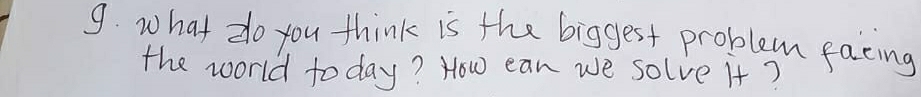 9. What do you think is the biggest problem facing
the world today? How can we solve it?